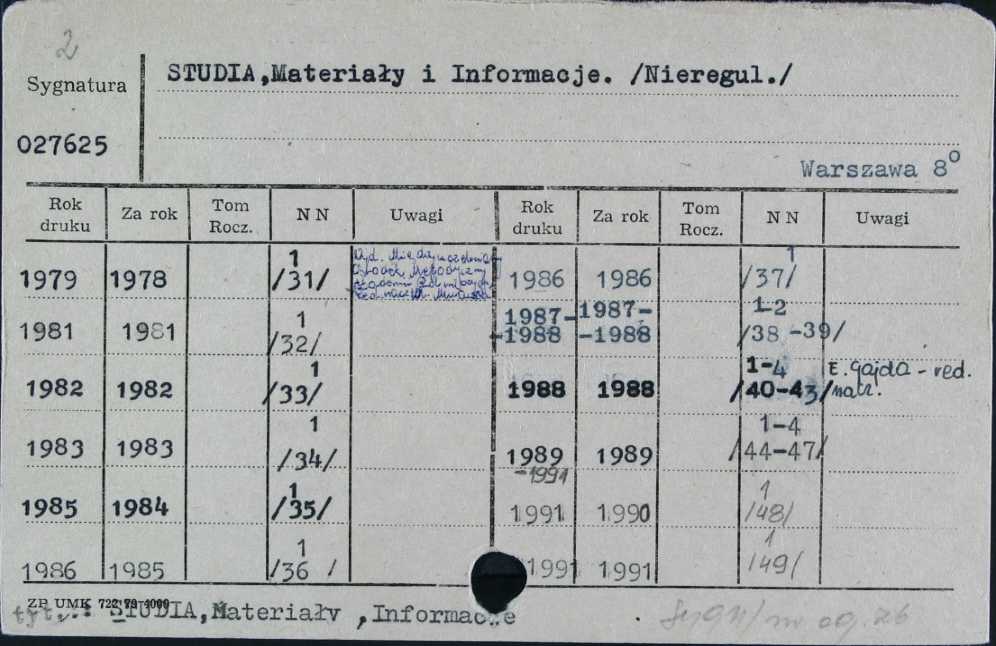 2
Sygnatura
STUDIA,Materiały i Informacje. /Nieregul./
027625
Warszawa 8°
Rok druku Za rok Tom Rocz. N N Uwagi Rok druku Za rok Tom Rocz. N N Uwagi
1979 1978 1 /31/ Wyd. Międzyuczelniany Ośrodek Metodyczny 1986 1986 1 /37/
1981 1981 1 /32/ 1987--1988 1987--1988 1-2 /38 -39/
1982 1982 1 /33/ 1988 1988 1-4 /40-43/ E. Gajda - red. nacz.
1983 1983 1 /34/ 1989 -1991 1989 1-4 /44-47/
1985 1984 1 /35/ 1991 1990 1 /48/
1986 1985 1 /36 / 1991 1991 1 /49/
ZP UMK 722 79 4000
tyt.: STUDIA,Materiały ,Informacje